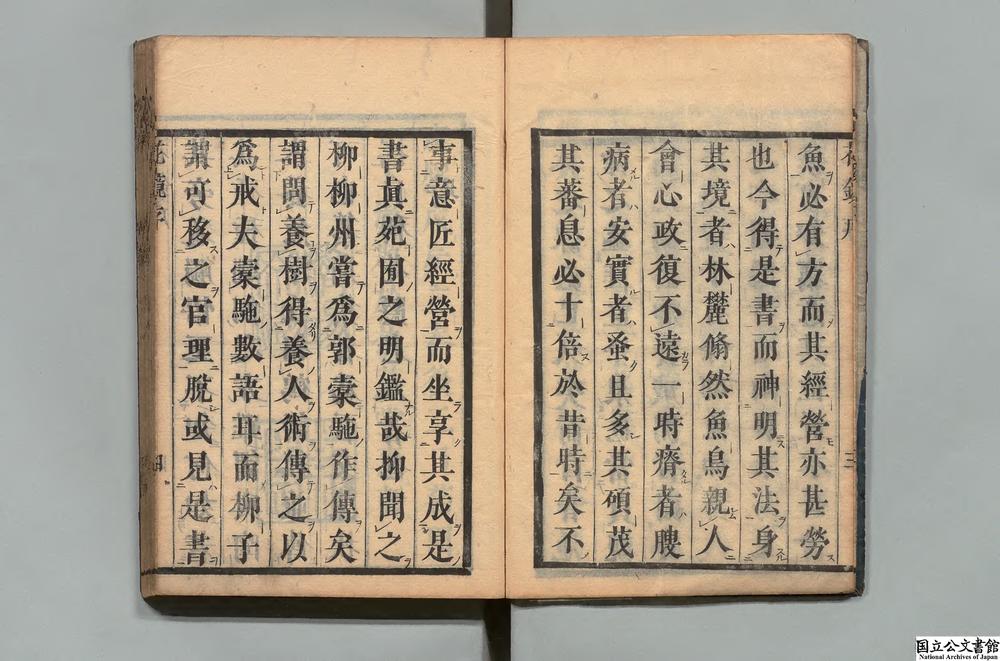 魚必有方而其經營亦甚勞
也今得是書而神明其法身
其境者林麓翛然魚鳥親人
會心政復不遠一時瘠者腴
病者安實者蚤且多其碩茂
其蕃息必十倍於昔時矣不
事意匠經營而坐享其成是
書眞苑囿之明鑑哉抑聞之
柳柳州嘗爲郭槖駞作傳矣
謂問養樹得養人術傳之以
爲戒夫槖駞數語耳而柳子
謂可移之官理脫或見是書
国立公文書館
National Archives of Japan